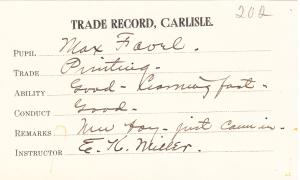 202
TRADE RECORD, CARLISLE.
PUPIL Max Favel.
TRADE Printing.
ABILITY Good - learning fast.
CONDUCT Good.
REMARKS New boy - just came in.
INSTRUCTOR E. K. Miller.